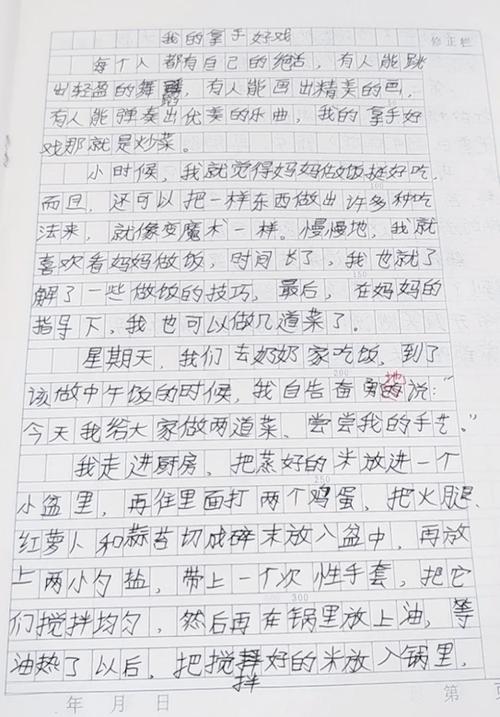 我的拿手好戏
修正栏
每个人都有自己的绝活，有人能跳
出轻盈的舞蹈，有人能画出精美的画，
有人能弹奏出优美的乐曲，我的拿手好
戏那就是炒菜。
小时候，我就觉得妈妈做饭挺好吃，
而且，还可以把一样东西做出许多种吃
100
法来，就像变魔术一样。慢慢地，我就
喜欢看妈妈做饭，时间长了，我也就了
150
解了一些做饭的技巧，最后，在妈妈的
指导下，我也可以做几道菜了。
星期天，我们去奶奶家吃饭，到了
200
该做中午饭的时候，我自告奋勇地说："
今天我给大家做两道菜、尝尝我的手艺。"
我走进厨房，把蒸好的米放进一个
250
小盆里，再往里面打两个鸡蛋，把火腿、
红萝卜和蒜苔切成碎末放入盆中，再放
上两小勺盐，带上一个次性手套，把它
300
们搅拌均匀，然后再在锅里放上油，等
油热了以后，把搅拌好的米放入锅里，
年 月 日
第 页